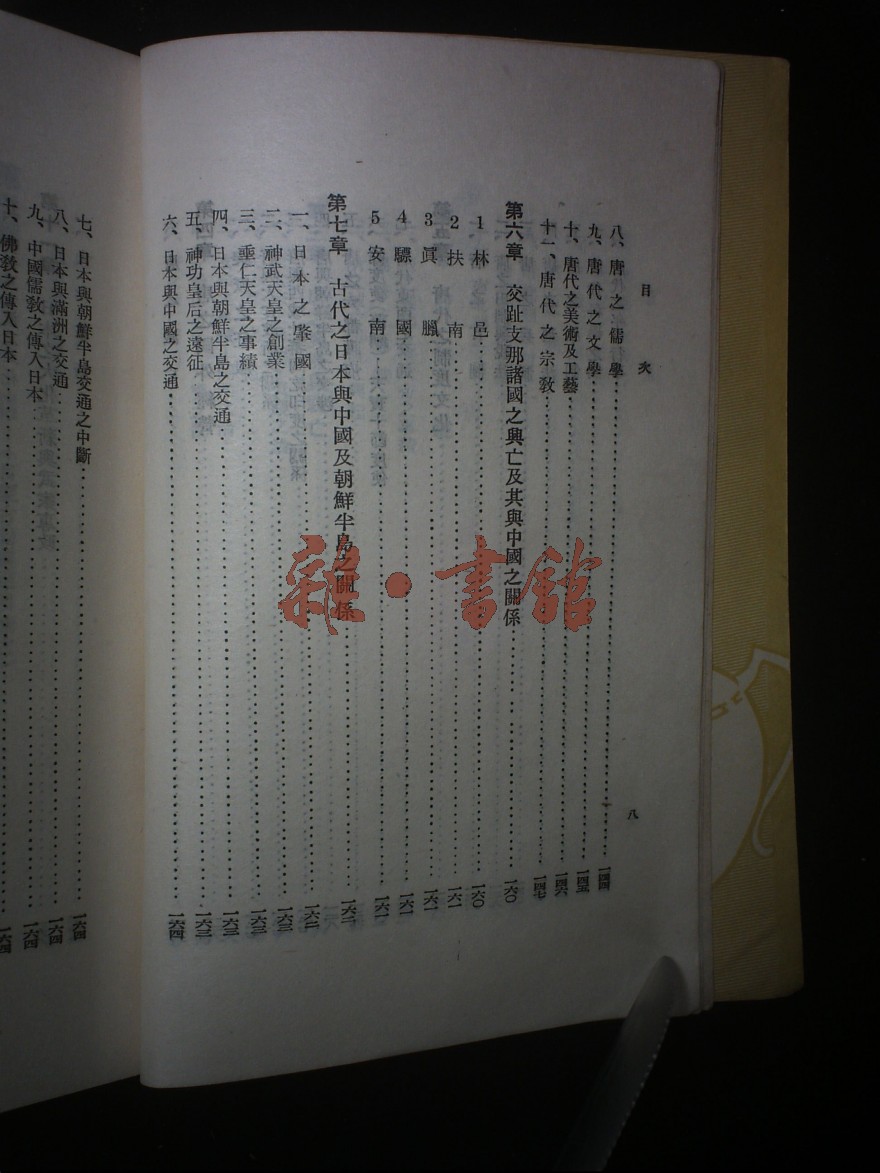 目次
八
八、唐代之儒學……一四四
九、唐代之文學……一四五
十、唐代之美術及工藝……一四六
十一、唐代之宗敎……一四七
第六章 交趾支那諸國之興亡及其與中國之關係……一六〇
1 林邑……一六〇
2 扶南……一六一
3 眞臘……一六一
4 驃國……一六一
5 安南……一六一
第七章 古代之日本與中國及朝鮮半島之關係……一六二
一、日本之肇國……一六二
二、神武天皇之創業……一六三
三、垂仁天皇之事績……一六三
四、日本與朝鮮半島之交通……一六三
五、神功皇后之遠征……一六三
六、日本與中國之交通……一六四
七、日本與朝鮮半島交通之中斷……一六四
八、日本與滿洲之交通……一六四
九、中國儒敎之傳入日本……一六四
十、佛敎之傳入日本……一六四
雜·書館